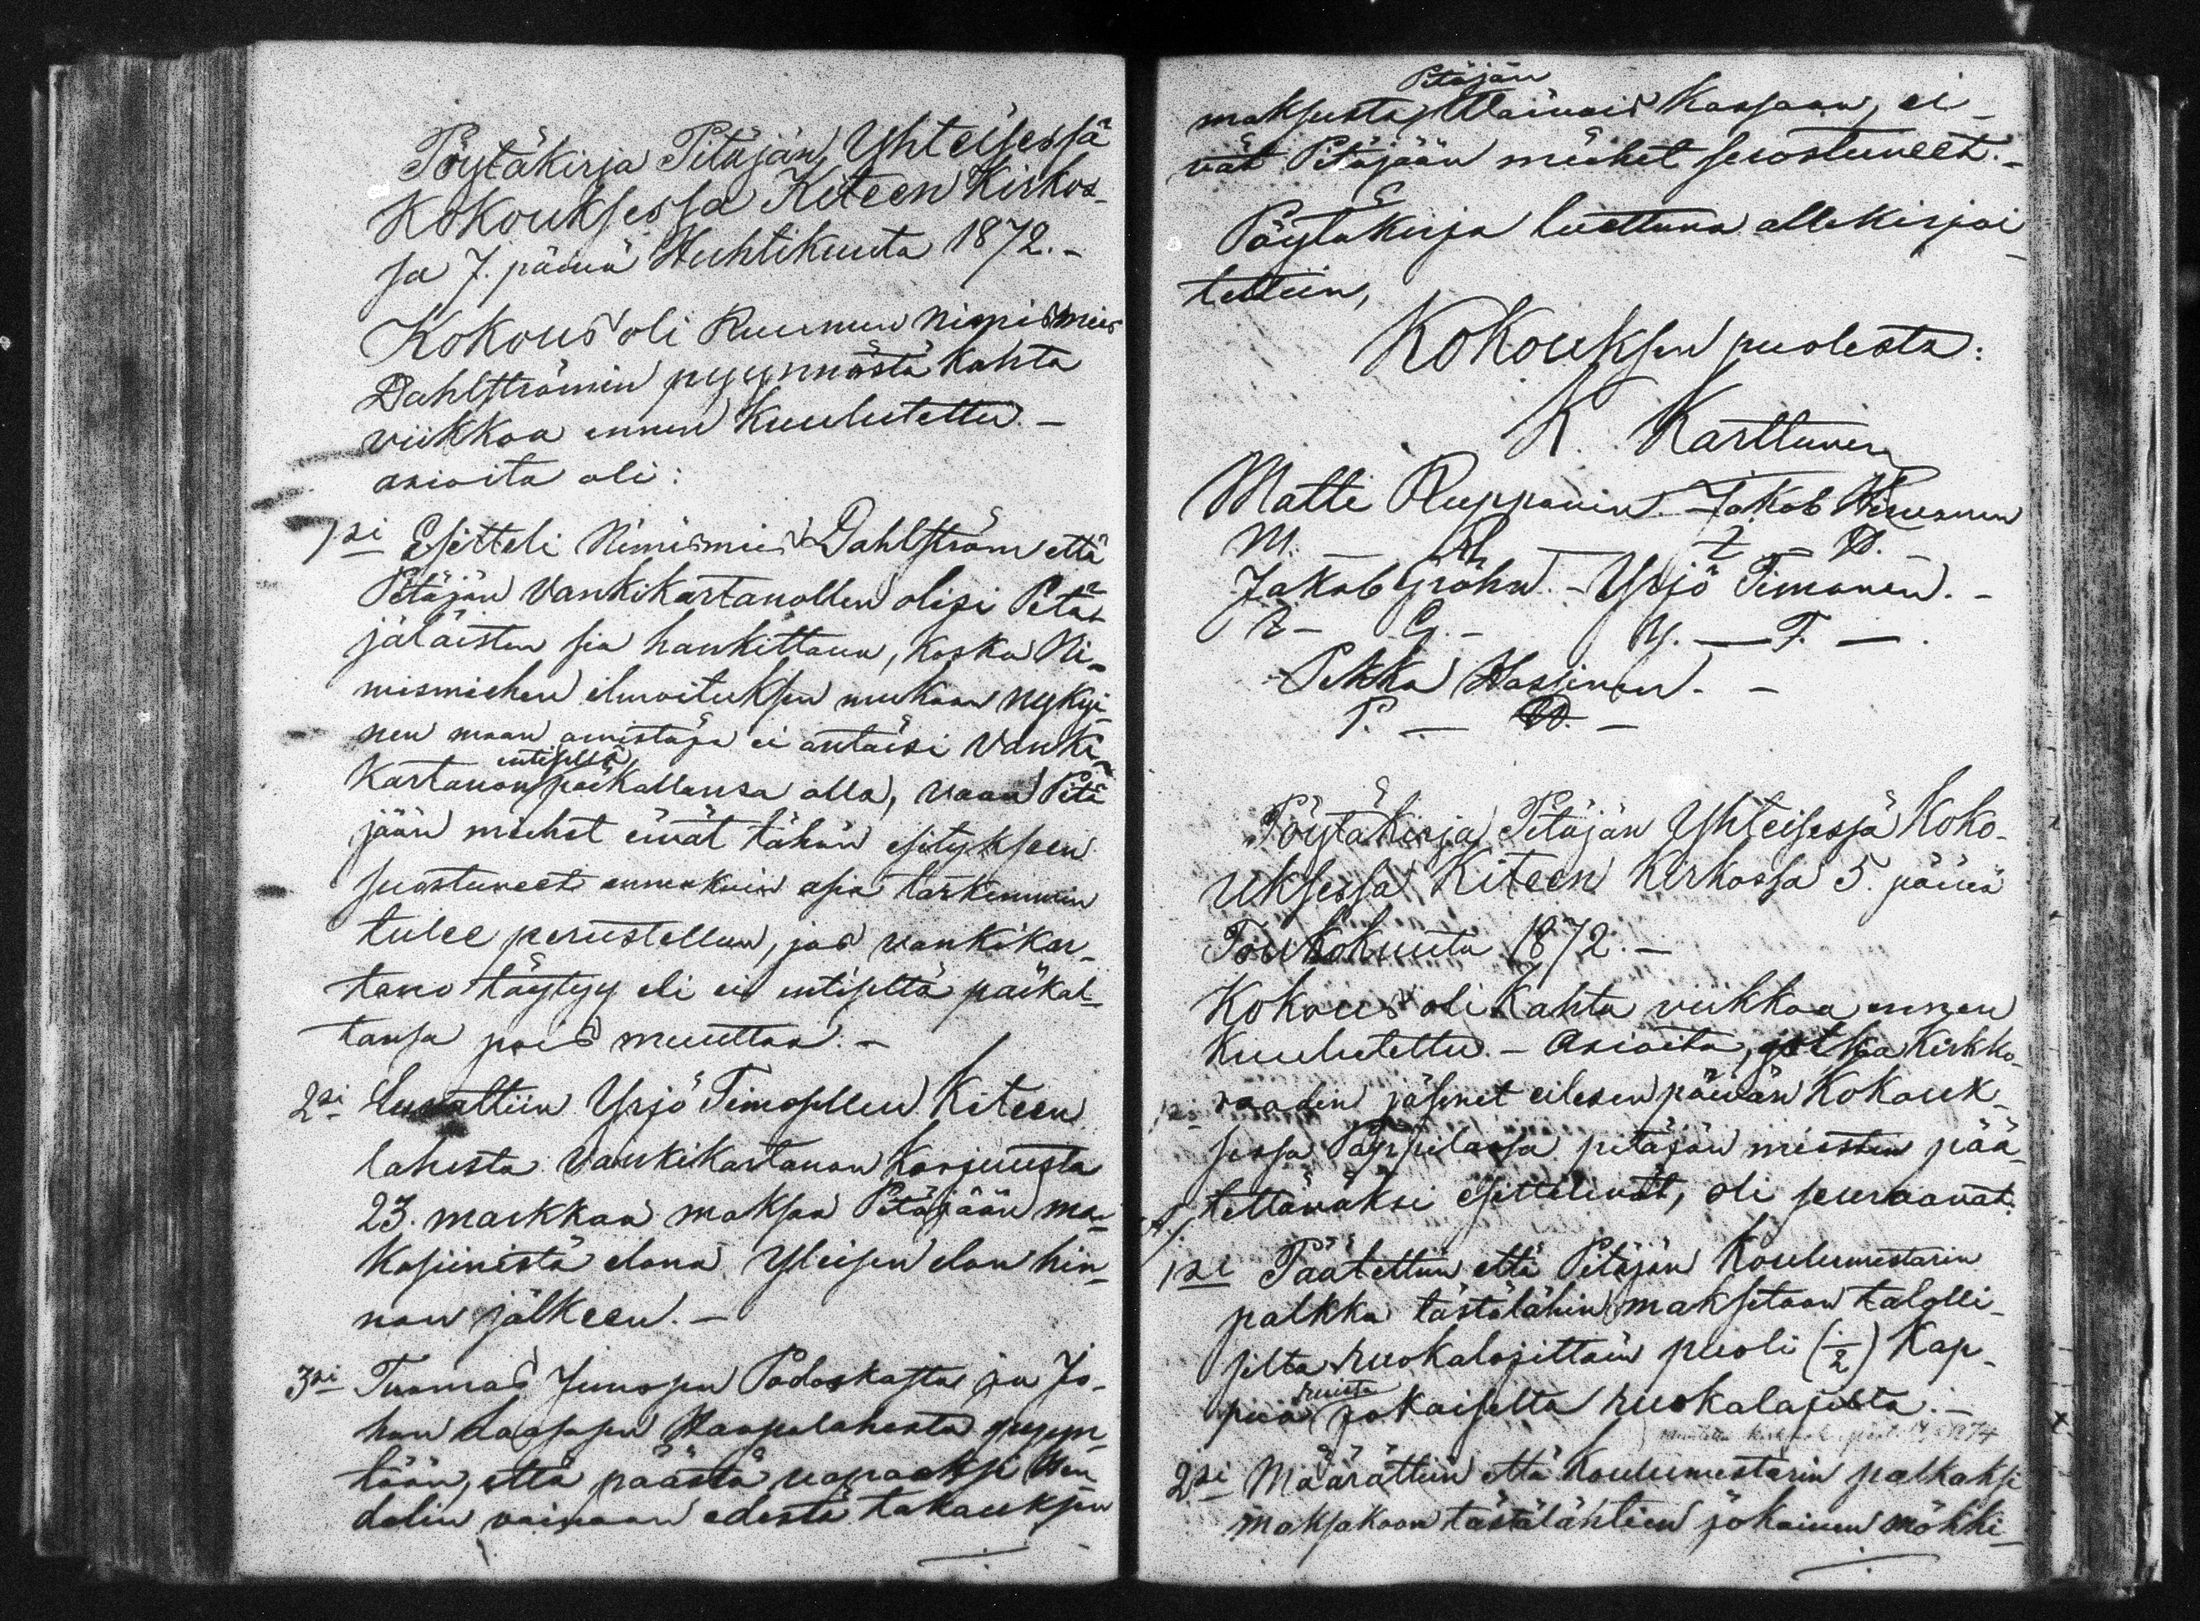 Pöytäkirja Pitäjän Yhteisessä
Kokouksessa Kiteen Kirkos-
sa 7. päivä Huhtikuuta 1872. -
Kokous oli Ruunun Nimismies
Dahlströmin pyynnöstä kahta
viikkoa ennen kuulutettu. -
asioita oli:
1si Esitteli Nimismies Dahlström että
Pitäjän vankikartanollen olisi Pitä-
jäläisten sia hankittava, koska Ni-
mismiehen ilmoituksen mukaan nykyi-
nen maan omistaja ei antaisi vanki-
kartanon entisellä paikallansa olla, vaan Pitä
jään miehet eivät tähän esitykseen
suostuneet ennenkuin asia tarkemmin
tulee perustellun, jos vankikar-
tano täytyy eli ei entiseltä paikal-
tansa pois muuttaa. -
2si Luvattiin Yrjö Timosellen Kiteen
lahesta vankikartanon korjuusta
23. markkaa maksaa Pitäjään ma-
kasiinista elona Yleisen elon hin-
nan jälkeen. -
3si Tuomas Junosen Podoskasta ja Jo-
han Laasosen Haapalahesta pyyn-
töön, että päästä vapaaksi Wen
delin vainaan edestä takauksen
maksusta Pitäjän Vaivais Kassaan, ei-
vät Pitäjään miehet suostuneet. -
Pöytäkirja luettuna allekirjoi
tettiin,
Kokouksen puolesta:
K. Karttunen
Matti Rupponen. - Jakob Hirvonen
M. R. - I - H. -
Jakob Gröhn. - Yrjö Timonen. -
I - G. - Y. - T. -
Pekka Hassinen. -
P. - H. -
Pöytäkirja Pitäjän Yhteisessä Koko-
uksessa Kiteen Kirkossa 5. päivä
Toukokuuta 1872. -
Kokous oli kahta viikkoa ennen
kuulutettu. - Asioita, jotka Kirkko
raadin jäsenet eilesen päivän Kokouk-
sessa Pappilassa pitäjän miesten pää-
tettäväksi esittelivät, oli seuraavat:
1si Päätettiin että Pitäjän Koulumestarin
palkka tästälähin maksetaan talolli-
silta ruokalajittain puoli (1/2) Kap-
paa ruista jokaiselta ruokalajilta. -
2si Määrättiin että koulumestarin palkaksi
maksakoon tästälähtien jokainen mökki-